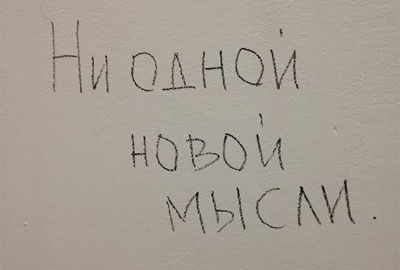 Ни одной
новой
мысли.